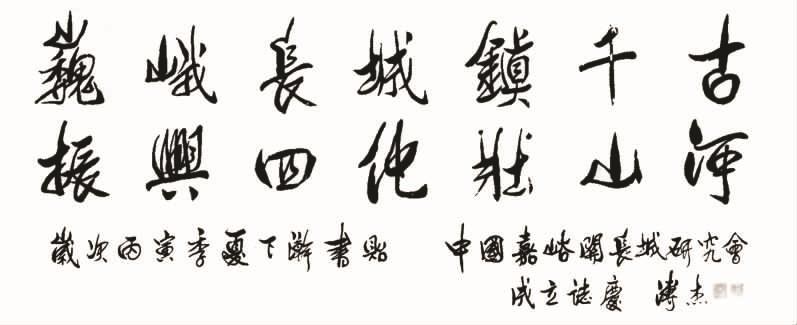 巍峨長城鎮千古
振興四化壯山河
歲次丙寅季夏下澣書貽 中國嘉峪關長城研究會
成立誌慶 溥杰